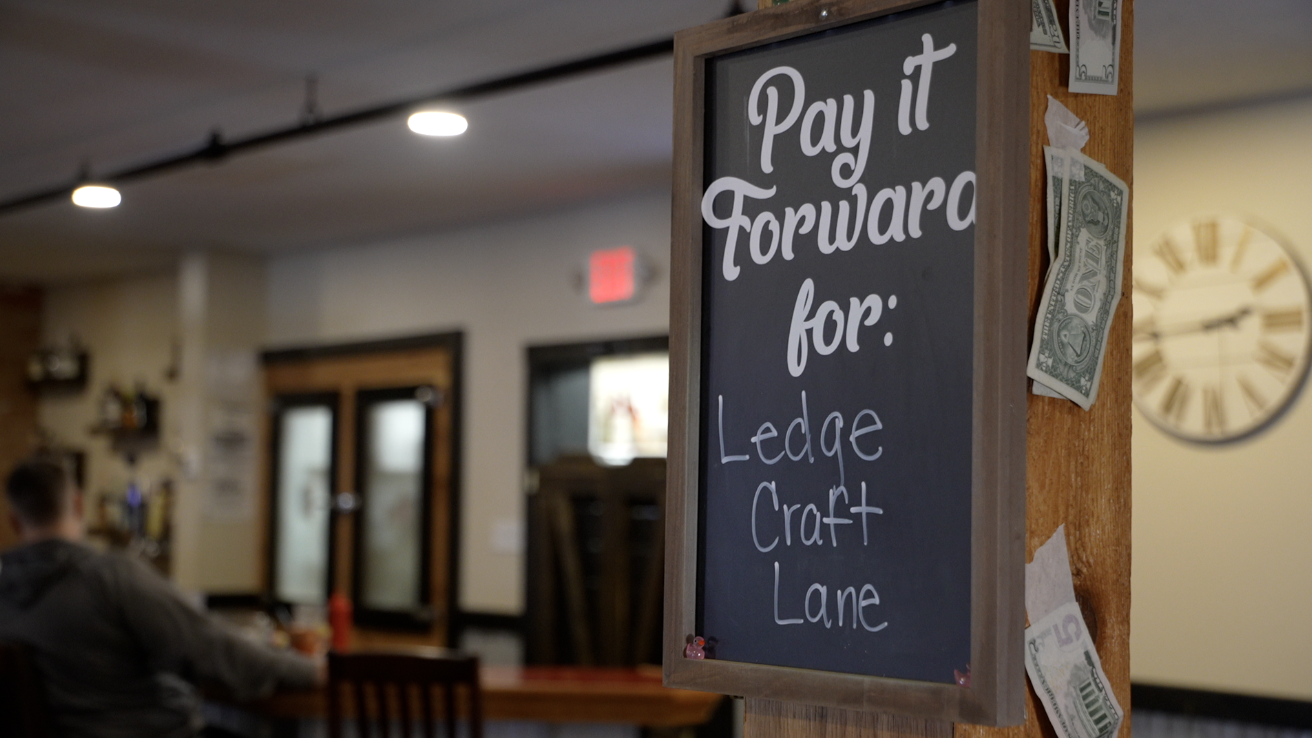 Pay it
Forward
for:
Ledge
Craft
Lane
ONE
5